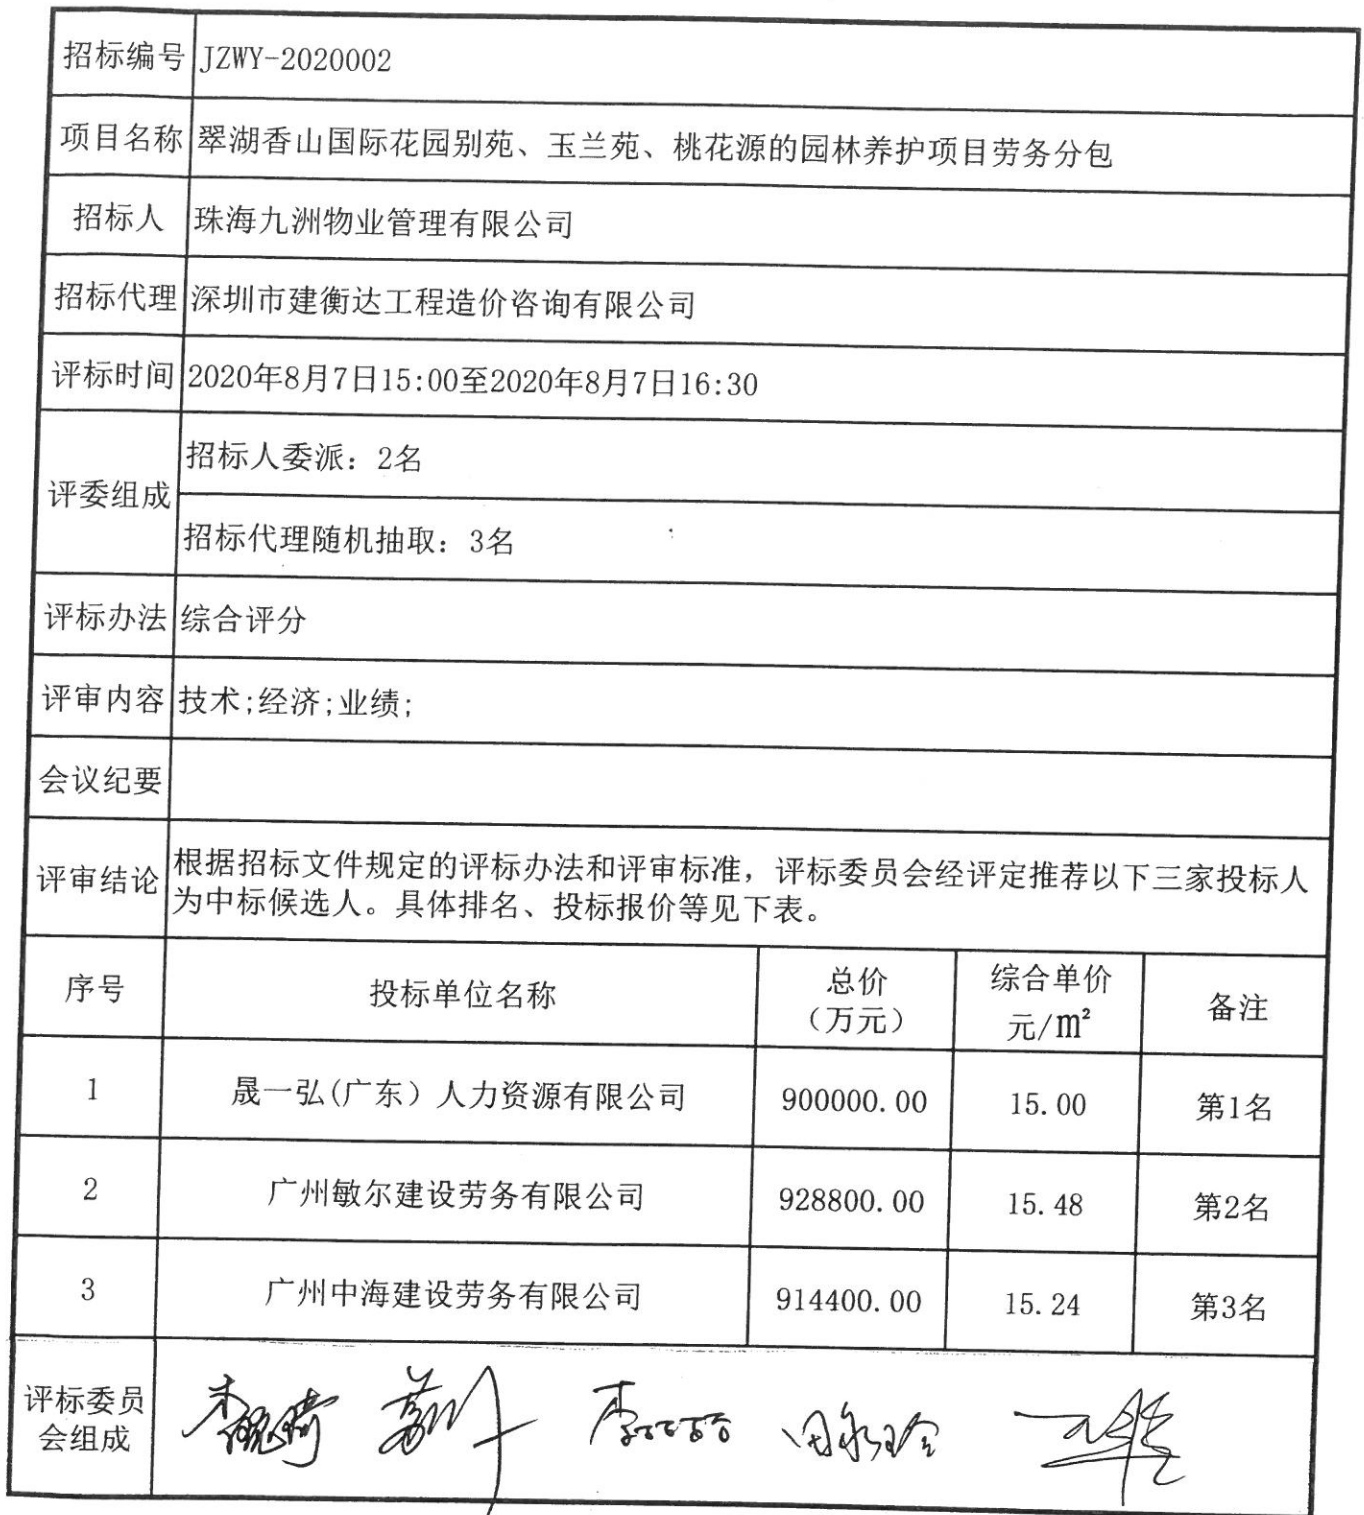 招标编号 JZWY-2020002
项目名称 翠湖香山国际花园别苑、玉兰苑、桃花源的园林养护项目劳务分包
招标人 珠海九洲物业管理有限公司
招标代理 深圳市建衡达工程造价咨询有限公司
评标时间 2020年8月7日15:00至2020年8月7日16:30
评委组成
招标人委派：2名
招标代理随机抽取：3名
评标办法 综合评分
评审内容 技术;经济;业绩;
会议纪要
评审结论
根据招标文件规定的评标办法和评审标准，评标委员会经评定推荐以下三家投标人
为中标候选人。具体排名、投标报价等见下表。
序号 投标单位名称 总价（万元） 综合单价元/㎡ 备注
1 晟一弘(广东）人力资源有限公司 900000.00 15.00 第1名
2 广州敏尔建设劳务有限公司 928800.00 15.48 第2名
3 广州中海建设劳务有限公司 914400.00 15.24 第3名
评标委员
会组成